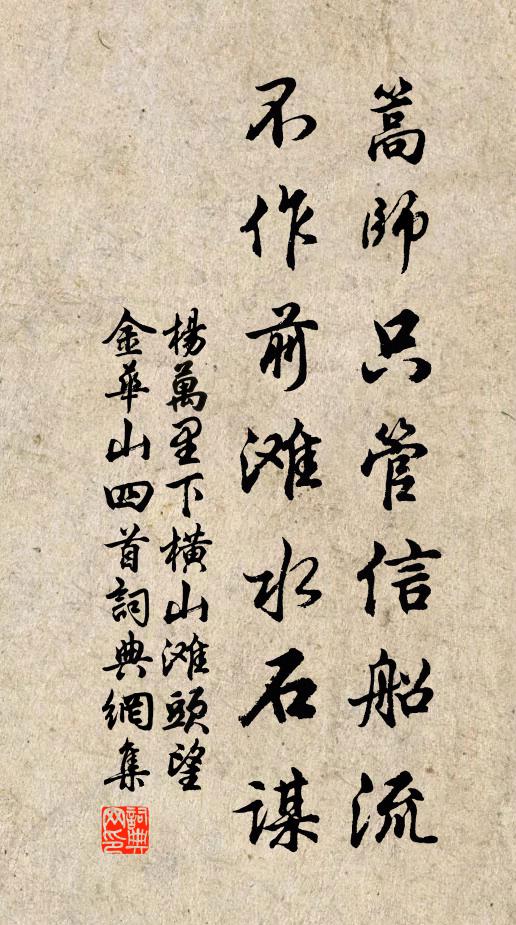 篙師只管信船流
不作前滩水石謀
楊萬里下横山滩頭望
金華山四首詞典網集
詞典
网印